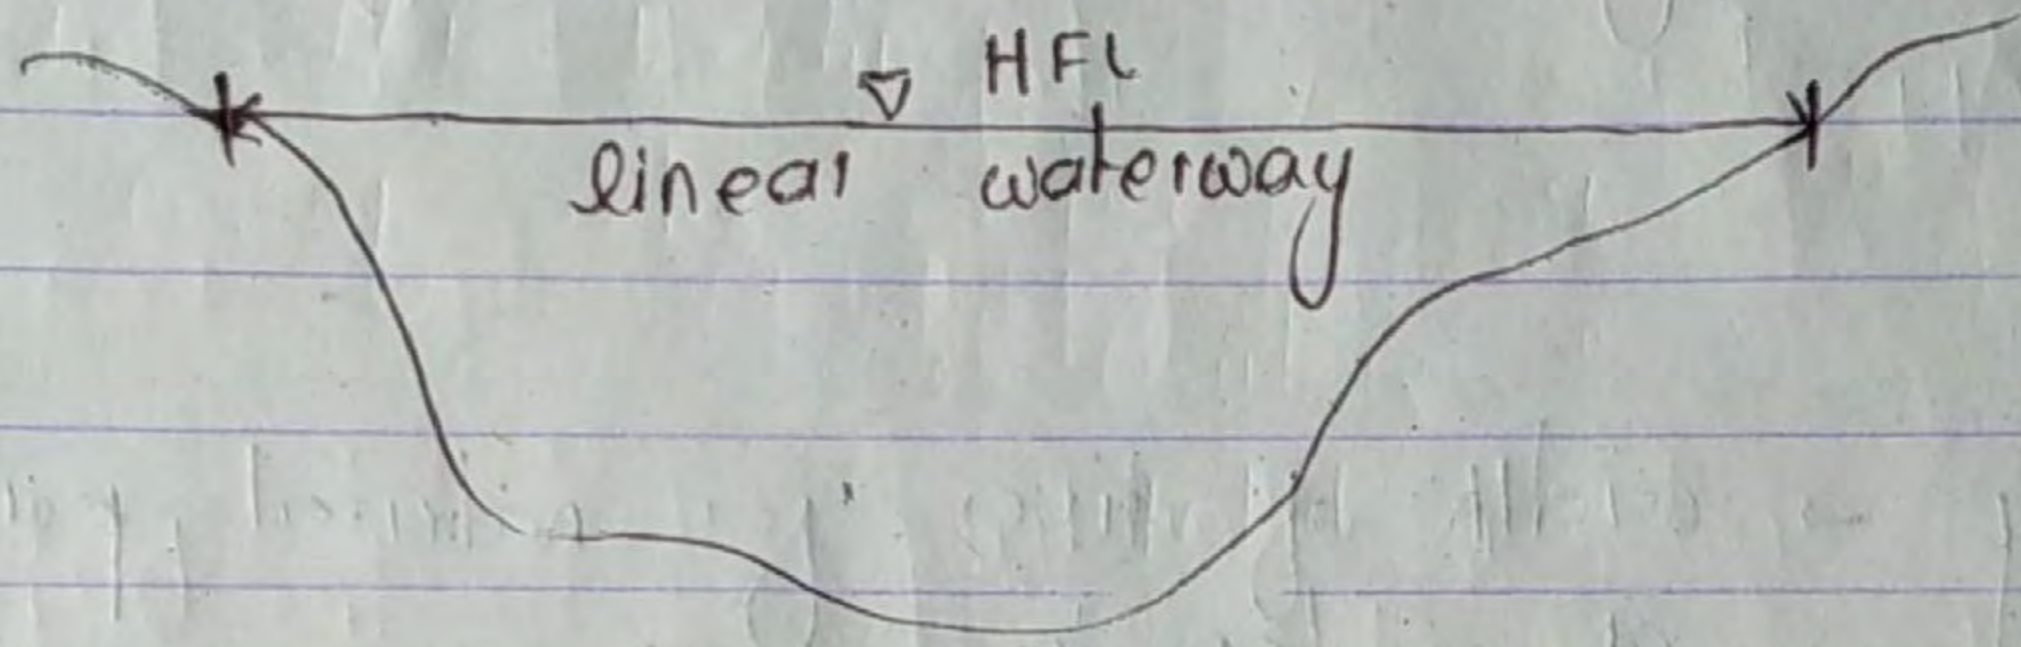 ▽ HFL
linear waterway